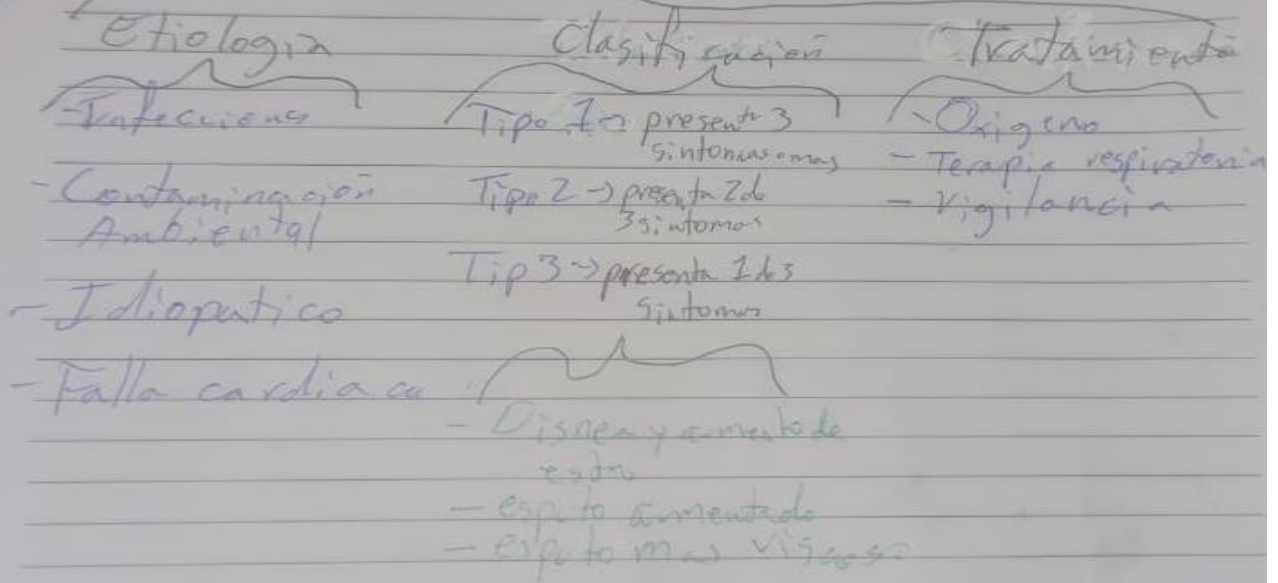 Etiologia
-Infecciones
-Contaminación
Ambiental
-Idiopatico
-Falla cardiaca
Clasificación
Tipo 1-> presenta 3
sintomas o mas
Tipo 2 -> presenta 2 de
3 sintomas
Tip 3 -> presenta 1 de 3
Sintomas
-Disnea y aumento de
esta
-esputo aumentado
-esputo mas viscoso
Tratamiento
-Oxigeno
-Terapia respiratoria
-Vigilancia